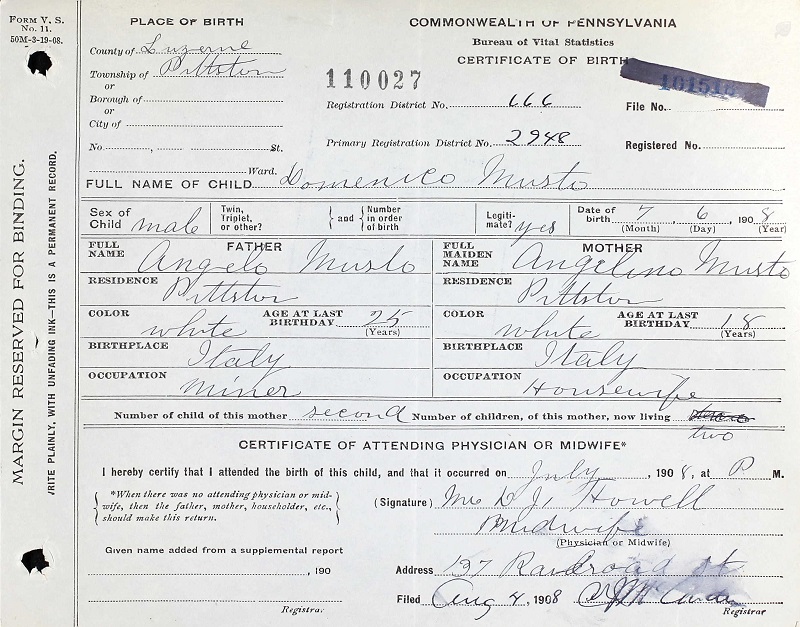 FORM V. S.
No. 11.
50M-3-19-08.
MARGIN RESERVED FOR BINDING.
RITE PLAINLY, WITH UNFADING INK—THIS IS A PERMANENT RECORD.
PLACE OF BIRTH
County of Luzerne
Township of Pittston
or
Borough of
or
City of
No. , St.
Ward.
COMMONWEALTH OF PENNSYLVANIA
Bureau of Vital Statistics
CERTIFICATE OF BIRTH
110027
101518
Registration District No. 666
File No.
Primary Registration District No. 2948
Registered No.
FULL NAME OF CHILD Domenico Musto
Sex of Child male
Twin, Triplet, or other?
and Number in order of birth
Legiti- mate? yes
Date of birth 7 6 , 1908
(Month) (Day) (Year)
FATHER
FULL NAME Angelo Musto
RESIDENCE Pittston
COLOR white AGE AT LAST BIRTHDAY 25
(Years)
BIRTHPLACE Italy
OCCUPATION Miner
MOTHER
FULL MAIDEN NAME Angelino Musto
RESIDENCE Pittston
COLOR white AGE AT LAST BIRTHDAY 18
(Years)
BIRTHPLACE Italy
OCCUPATION Housewife
Number of child of this mother second Number of children, of this mother, now living
two
CERTIFICATE OF ATTENDING PHYSICIAN OR MIDWIFE*
I hereby certify that I attended the birth of this child, and that it occurred on July , 1908, at P M.
*When there was no attending physician or mid-
wife, then the father, mother, householder, etc.,
should make this return.
(Signature) Mrs D J Howell
Midwife
(Physician or Midwife)
Given name added from a supplemental report
, 190
Registrar
Address 127 Railroad St
Filed Aug 4, 1908
Registrar